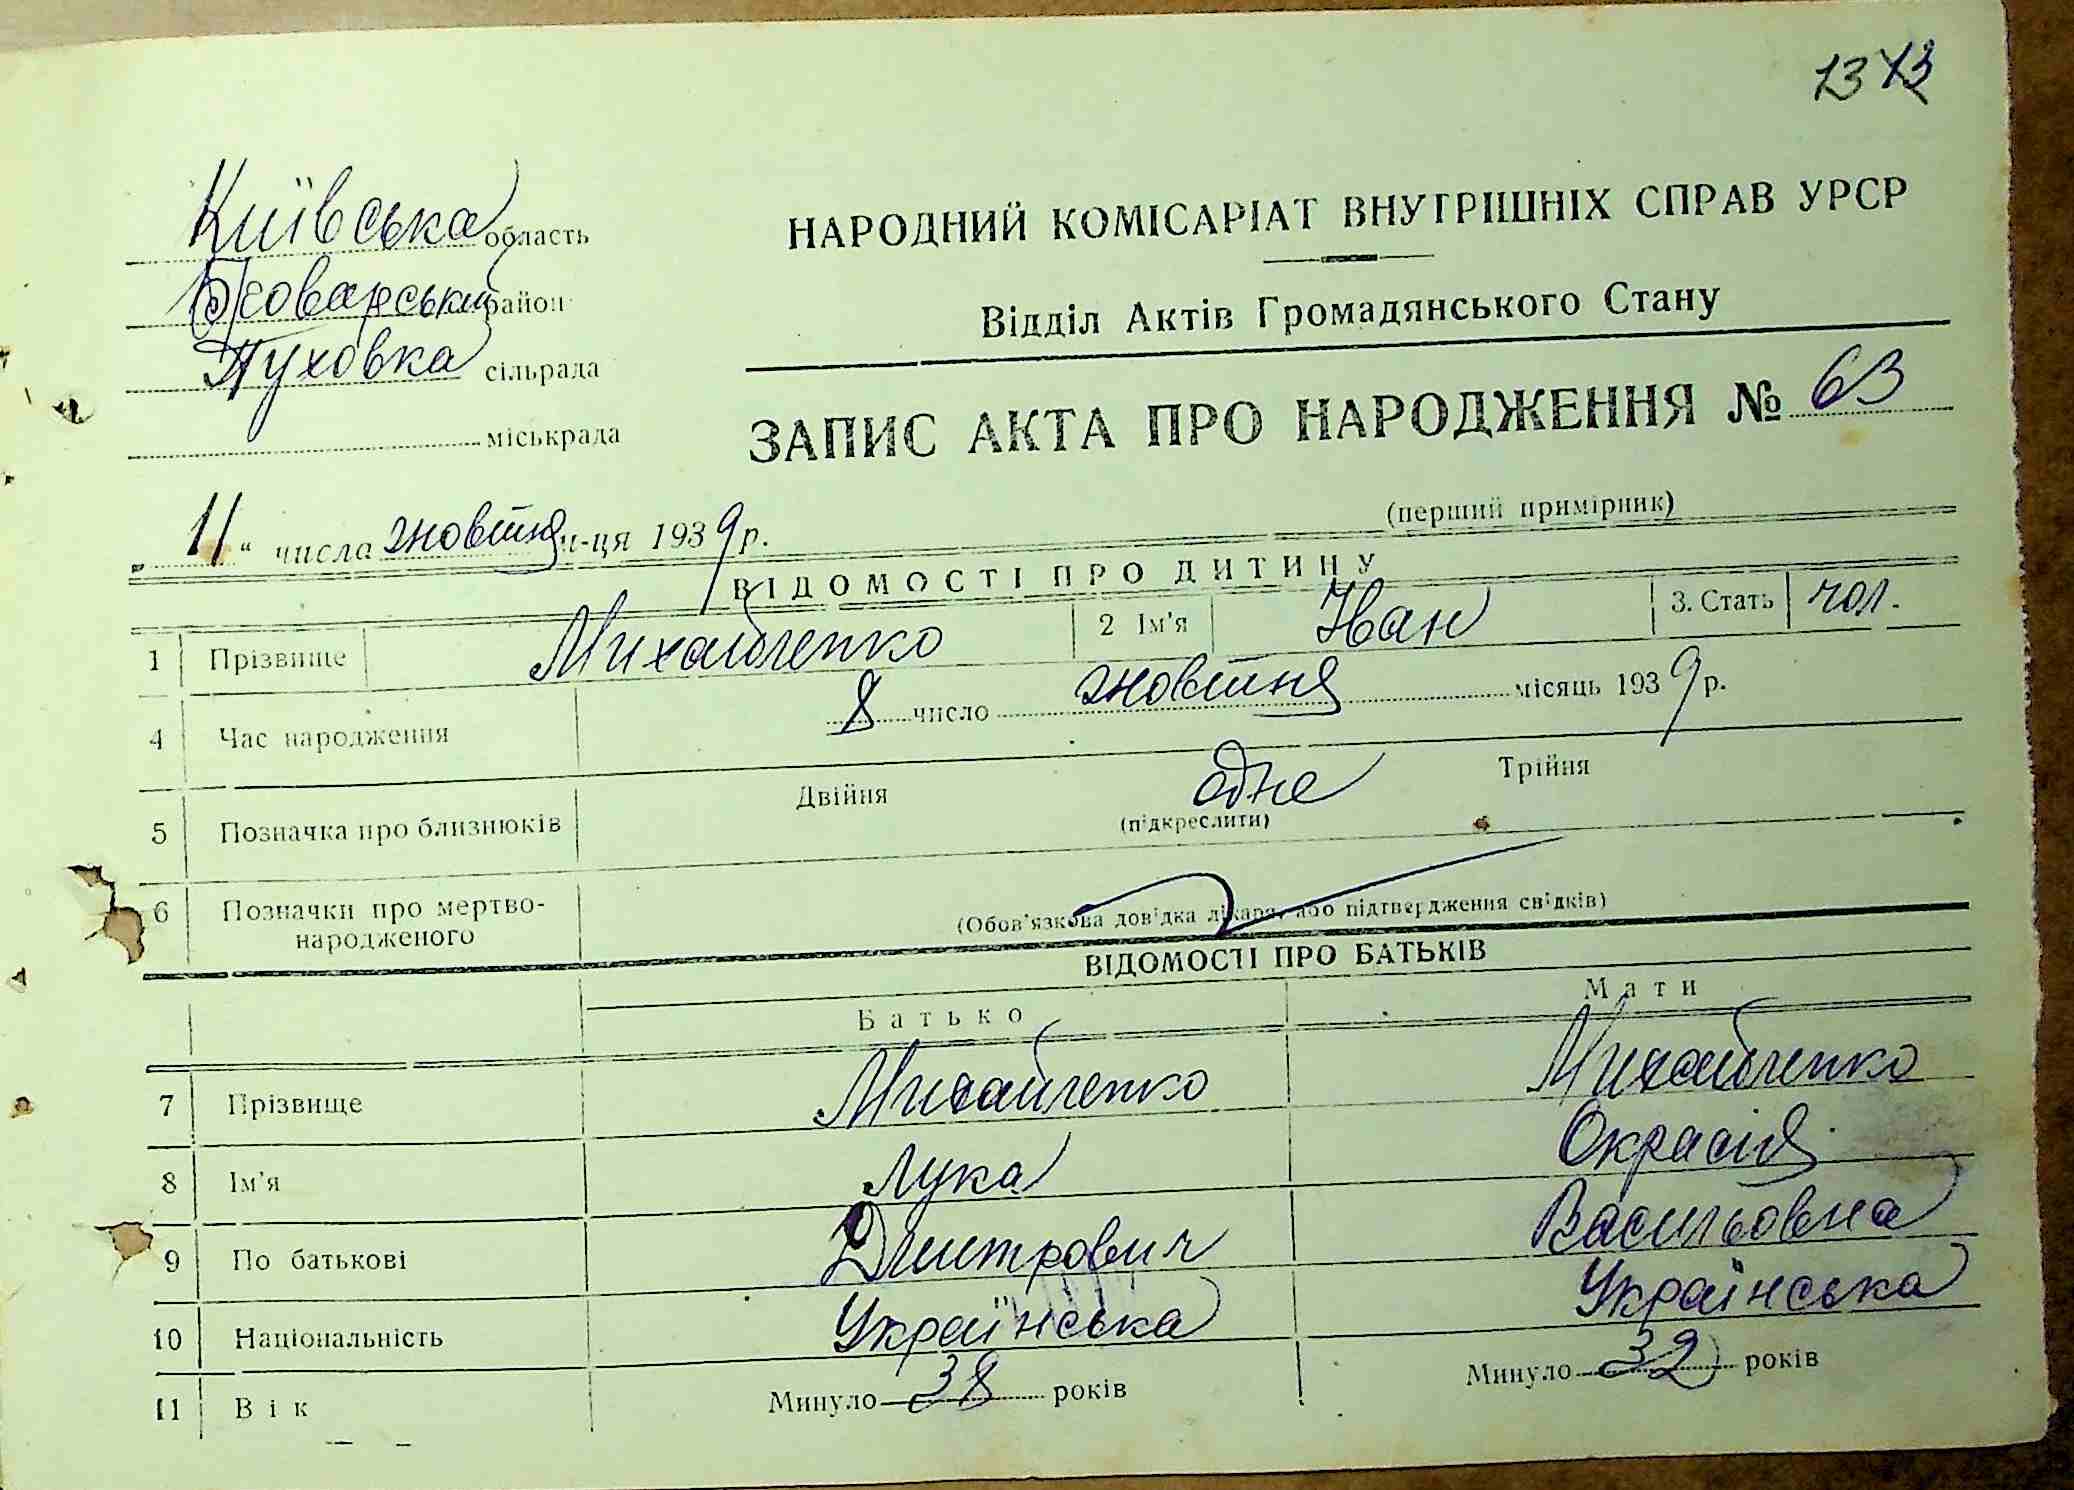 13
Київська область
Броварський район
Пуховка сільрада
міськрада
НАРОДНИЙ КОМІСАРІАТ ВНУТРІШНІХ СПРАВ УРСР
Відділ Актів Громадянського Стану
ЗАПИС АКТА ПРО НАРОДЖЕННЯ № 63
(перший примірник)
„11“ числа жовтня м-ця 1939 р.
ВІДОМОСТІ ПРО ДИТИНУ
1 Прізвище Михайленко 2 Ім'я Іван 3. Стать чол.
4 Час народження 8 число жовтня місяць 1939 р.
5 Позначка про близнюків Двійня одне Трійня
(підкреслити)
6 Позначки про мертво-
народженого (Обов'язкова довідка лікаря, або підтвердження свідків)
ВІДОМОСТІ ПРО БАТЬКІВ
Батько Мати
7 Прізвище Михайленко Михайленко
8 Ім'я Лука
9 По батькові Дмитрович Васильовна
10 Національність Українська Українська
11 Вік Минуло 38 років Минуло 32 років